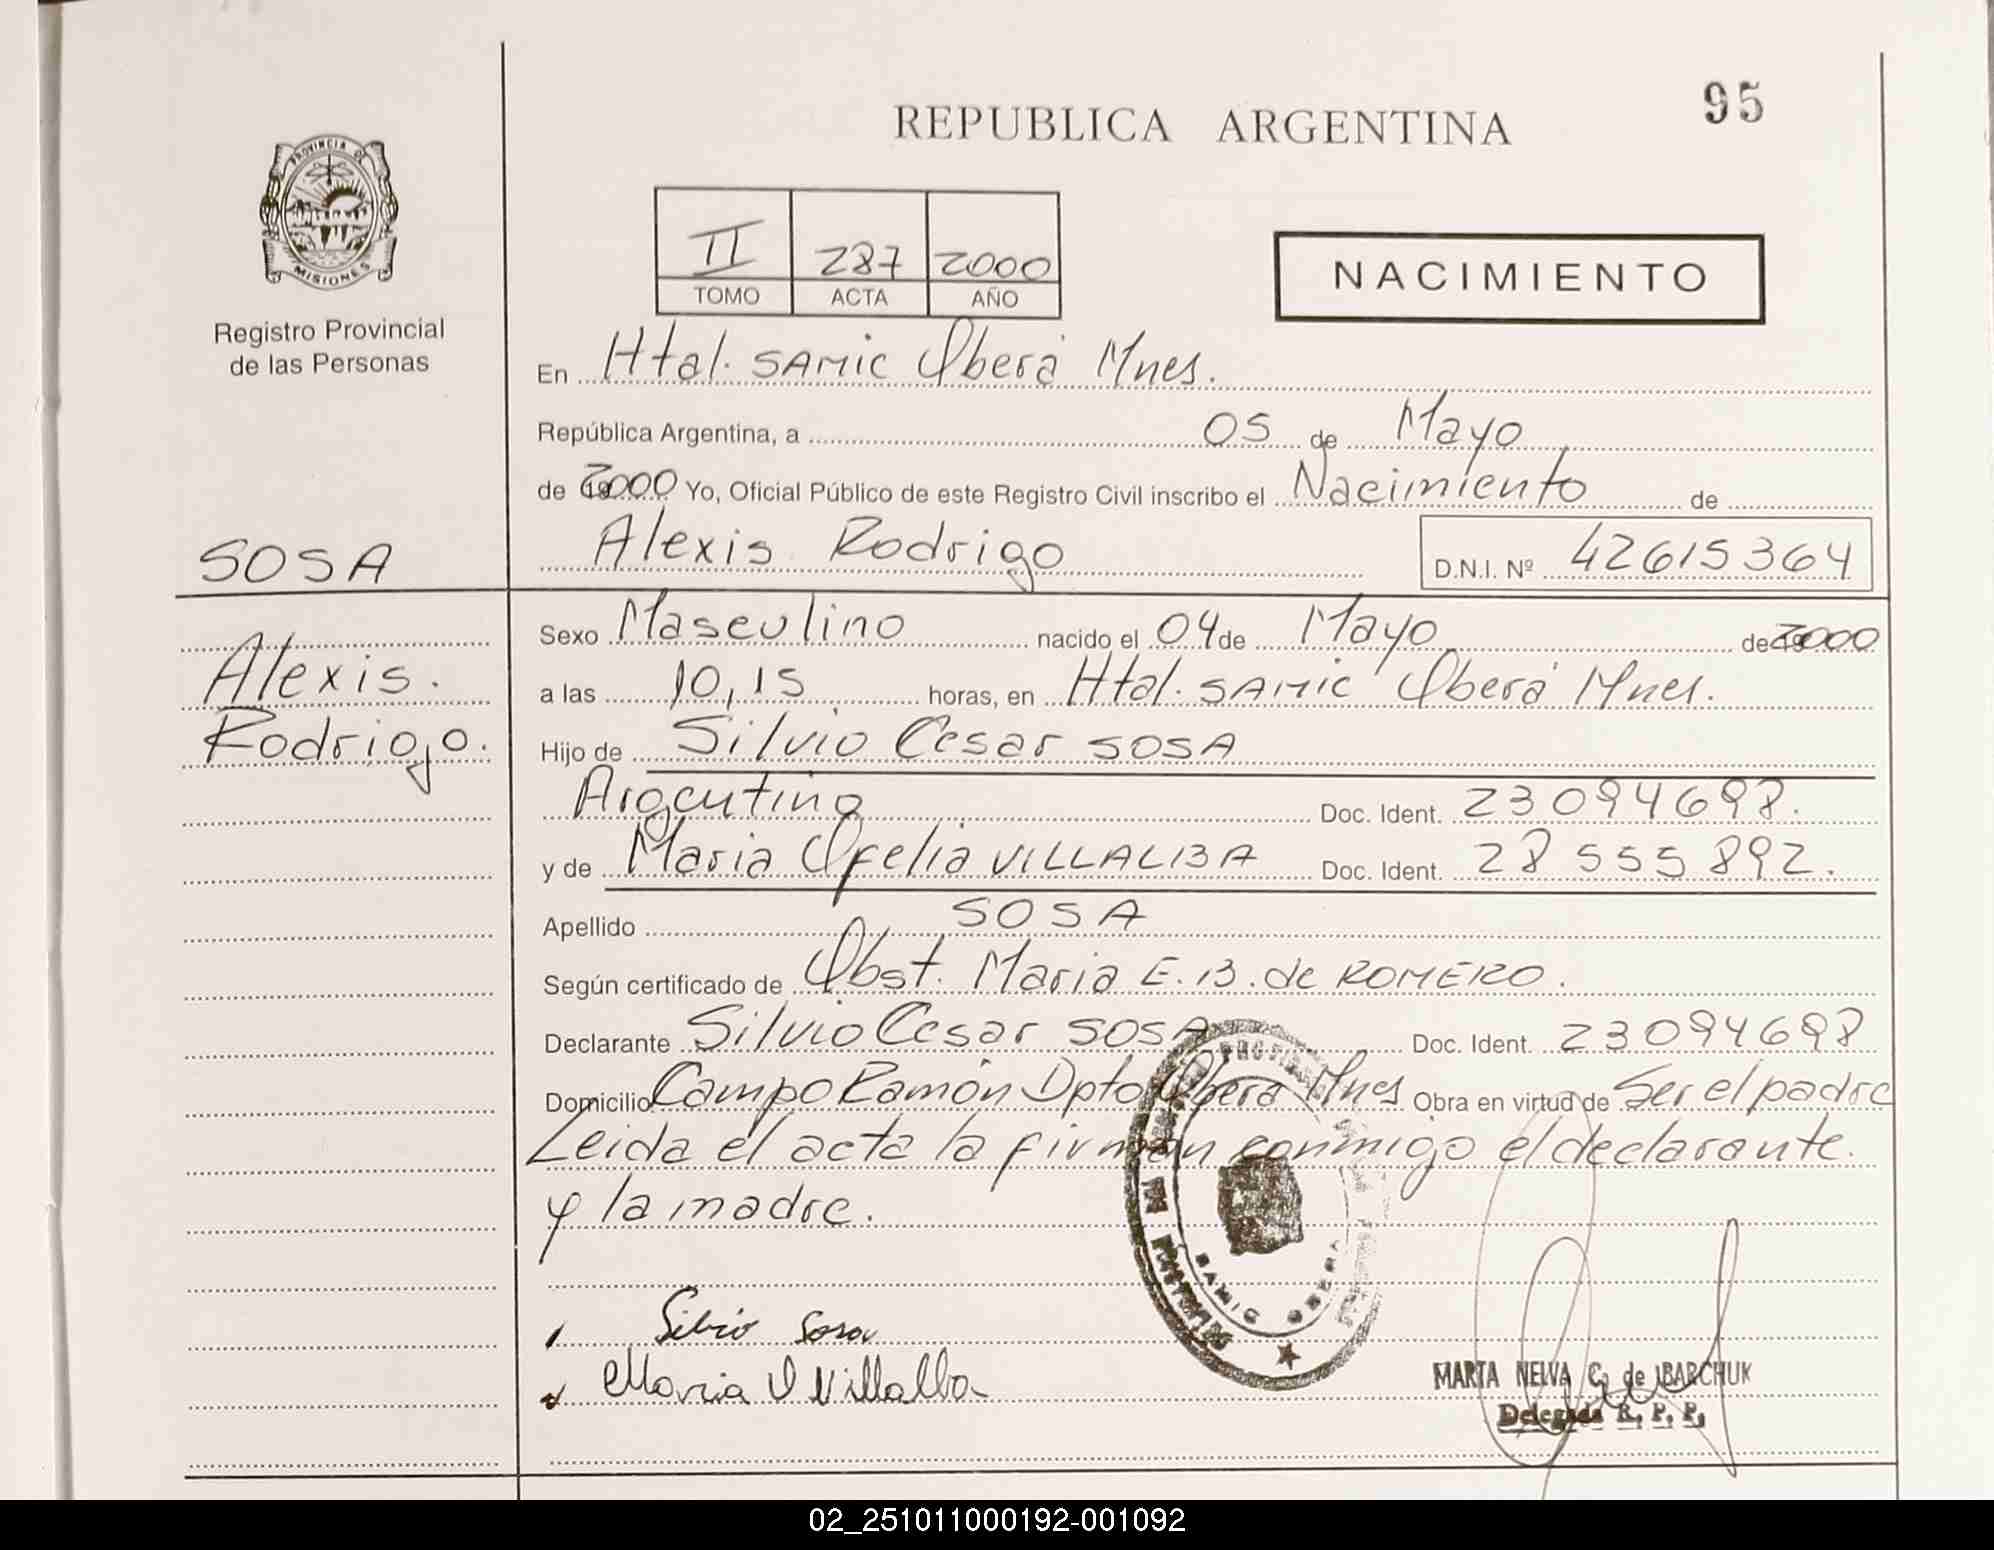 95
REPUBLICA ARGENTINA
PROVINCIA DE
MISIONES
Registro Provincial
de las Personas
II 287 2000
TOMO ACTA AÑO
NACIMIENTO
En Htal. SAMIC Oberá Mnes.
República Argentina, a 05 de Mayo
de 2000 Yo, Oficial Público de este Registro Civil inscribo el Nacimiento de
Alexis Rodrigo D.N.I. Nº 42615364
SOSA
Alexis.
Rodrigo.
Sexo Masculino nacido el 04 de Mayo de 2000
a las 10,15 horas, en Htal. SAMIC Oberá Mnes.
Hijo de Silvio Cesar SOSA
Argentino Doc. Ident. 23094698.
y de Maria Ofelia VILLALBA Doc. Ident. 28555892.
Apellido SOSA
Según certificado de Obst. Maria E. B. de ROMERO.
Declarante Silvio Cesar SOSA Doc. Ident. 23094698
Domicilio Campo Ramón Dpto Oberá Mnes Obra en virtud de Ser el padre
Leida el acta la firman conmigo el declarante
y la madre.
SAMIC OBERA
Silvio Sosa
Maria O Villalba
MARTA NELVA C. de IBARCHUK
Delegada R. P. P.
02_251011000192-001092